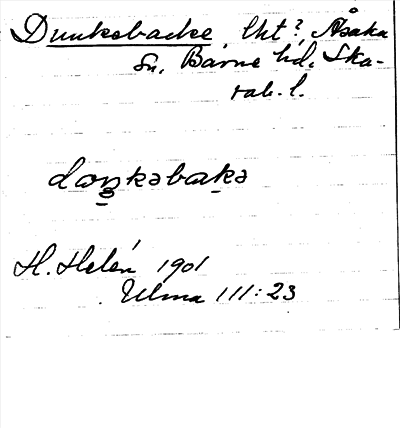 Dunkebacke, lht? Åsaka
sn, Barne hd, Ska-
rab. l.
daŋkabaka
H. Helén 1901
Ulma 111:23